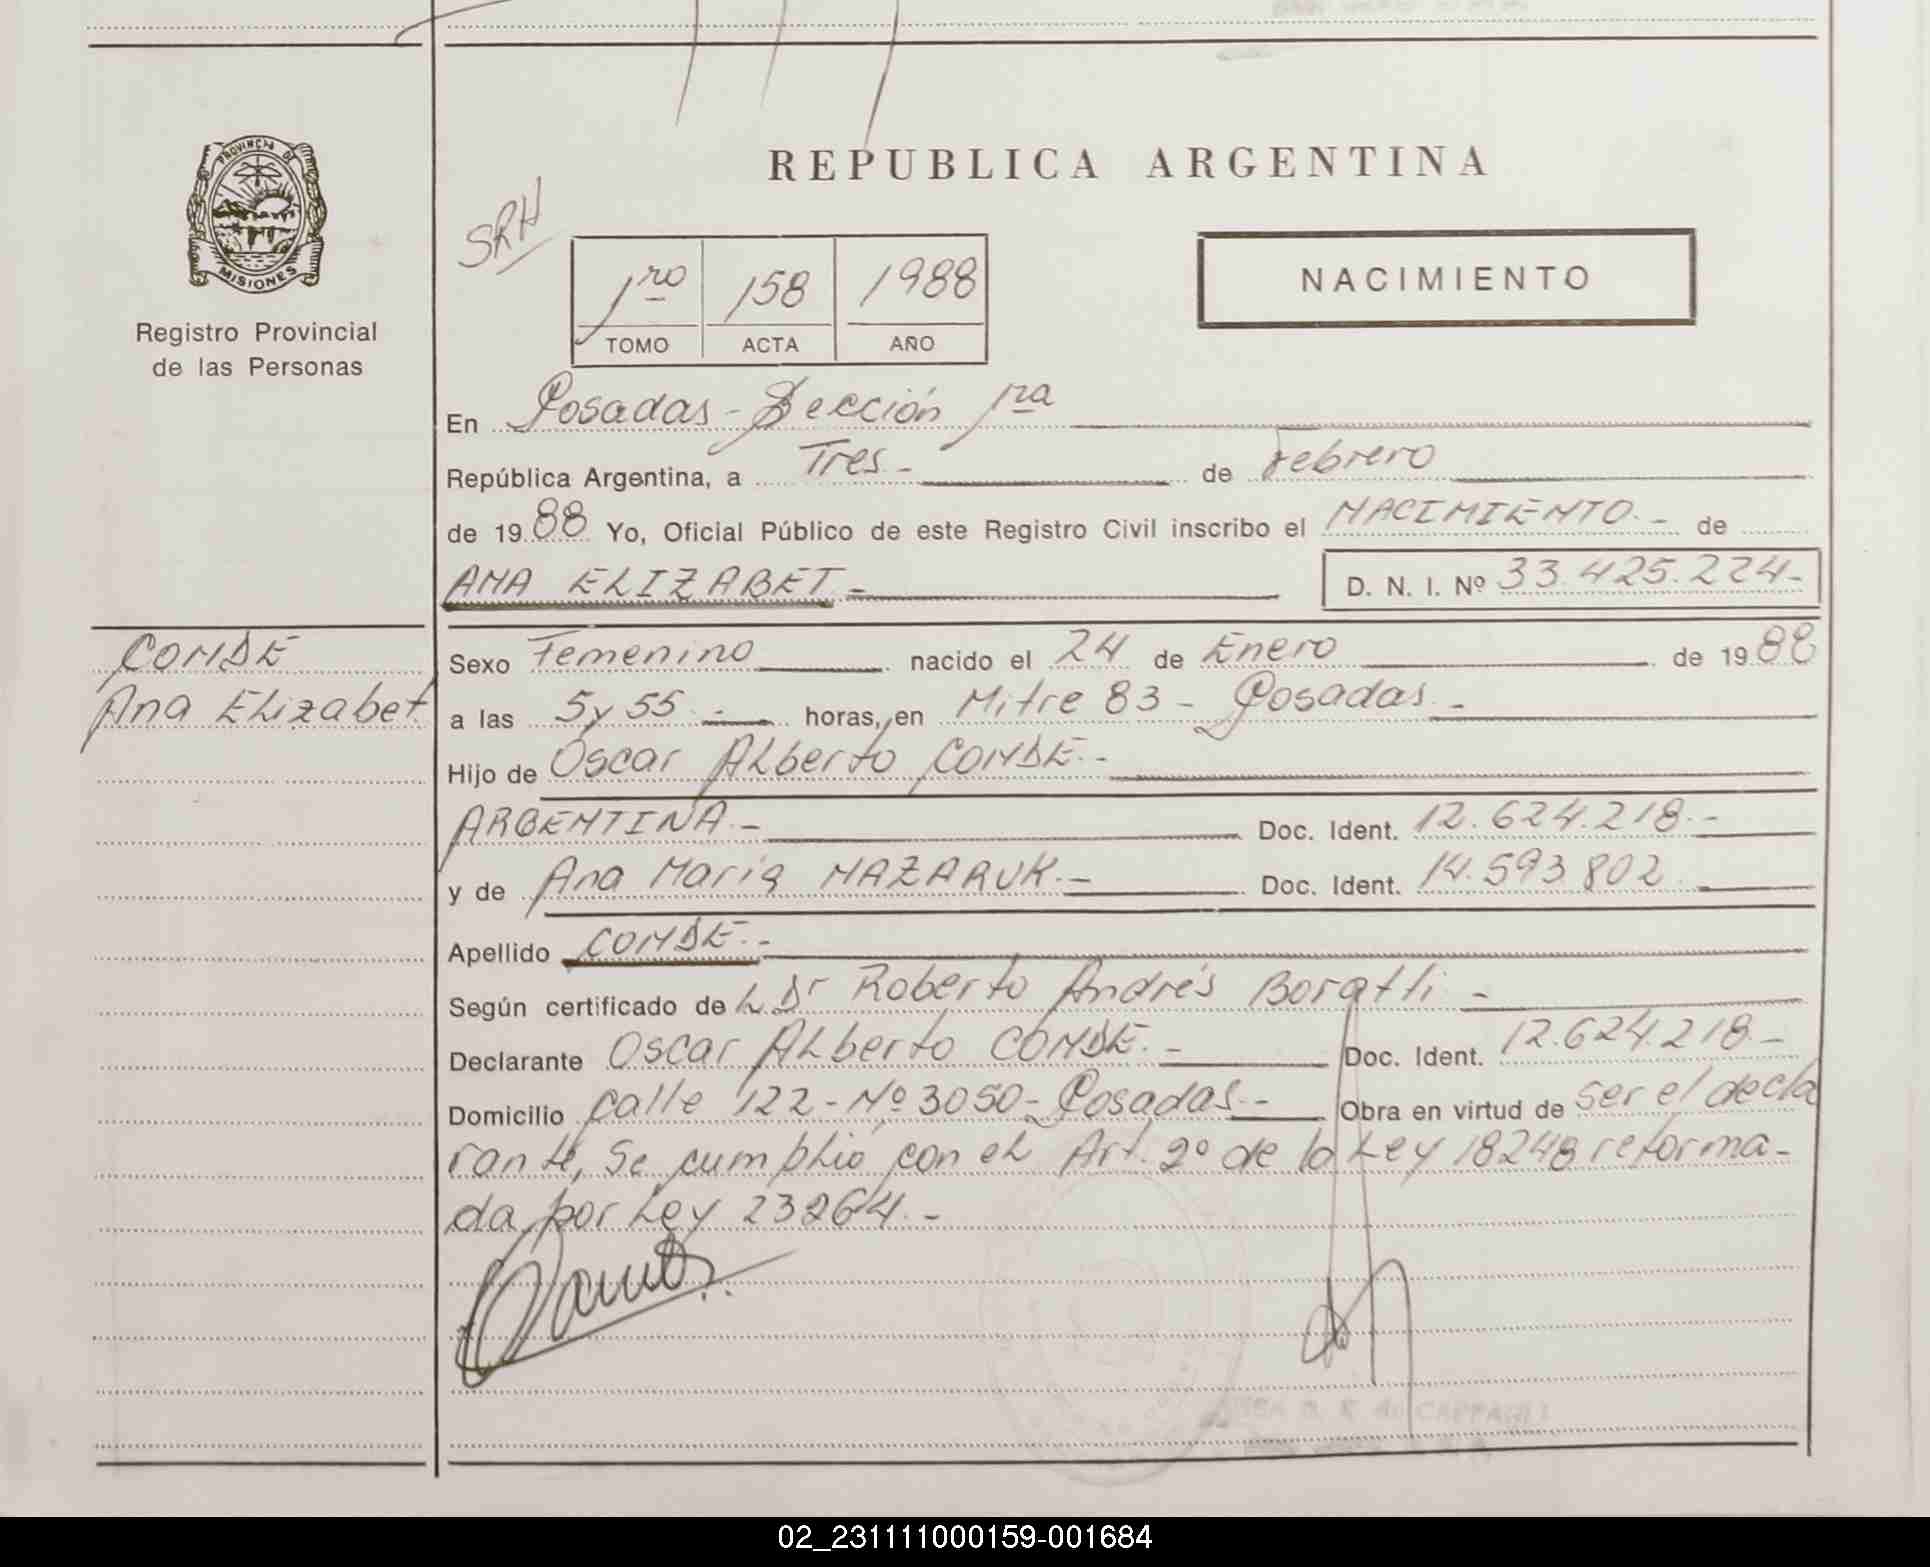 PROVINCIA DE
MISIONES
Registro Provincial
de las Personas
REPUBLICA ARGENTINA
SRH
1ro 158 1988
TOMO ACTA AÑO
NACIMIENTO
En Posadas - Sección 1ra
República Argentina, a Tres - de Febrero
de 1988 Yo, Oficial Público de este Registro Civil inscribo el NACIMIENTO - de
ANA ELIZABET - D. N. I. Nº 33.425.224-
CONDE
Ana Elizabet
Sexo Femenino nacido el 24 de Enero de 1988
a las 5 y 55 - horas, en Mitre 83 - Posadas -
Hijo de Oscar Alberto CONDE -
ARGENTINA - Doc. Ident. 12.624.218 -
y de Ana María NAZARUK - Doc. Ident. 14.593.802
Apellido CONDE -
Según certificado de L Dr Roberto Andrés Boratti -
Declarante Oscar Alberto CONDE - Doc. Ident. 12.624.218 -
Domicilio calle 122 - Nº 3050 - Posadas - Obra en virtud de ser el decla
rante, se cumplió con el Art. 2º de la Ley 18248 reforma-
da por Ley 23264 -
02_231111000159-001684